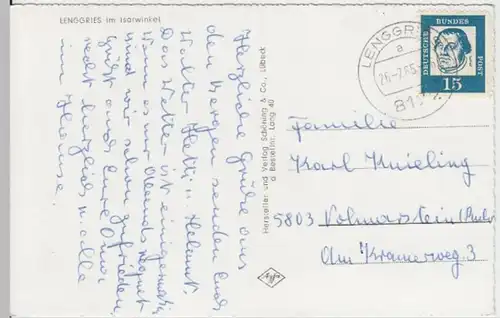 LENGGRIES im Isarwinkel
Herzliche Grüße aus
den Bergen senden Euch
Walter, Hetti u. Helmut.
Das Wetter ist einigermaßen
Wenn es nur Abends regnet
sind wir schon zufrieden.
Grüßt and. Eure Oma
recht herzlich u. alle
im Hause.
Hersteller und Verlag Schöning & Co., Lübeck
Bestellnr. Leng 40
Agfa
LENGGRIES
a
26.-7.65
DEUTSCHE BUNDES POST
15
Familie
Karl Knieling
5803 Volmarstein (Ruhr)
Am Kramerweg 3